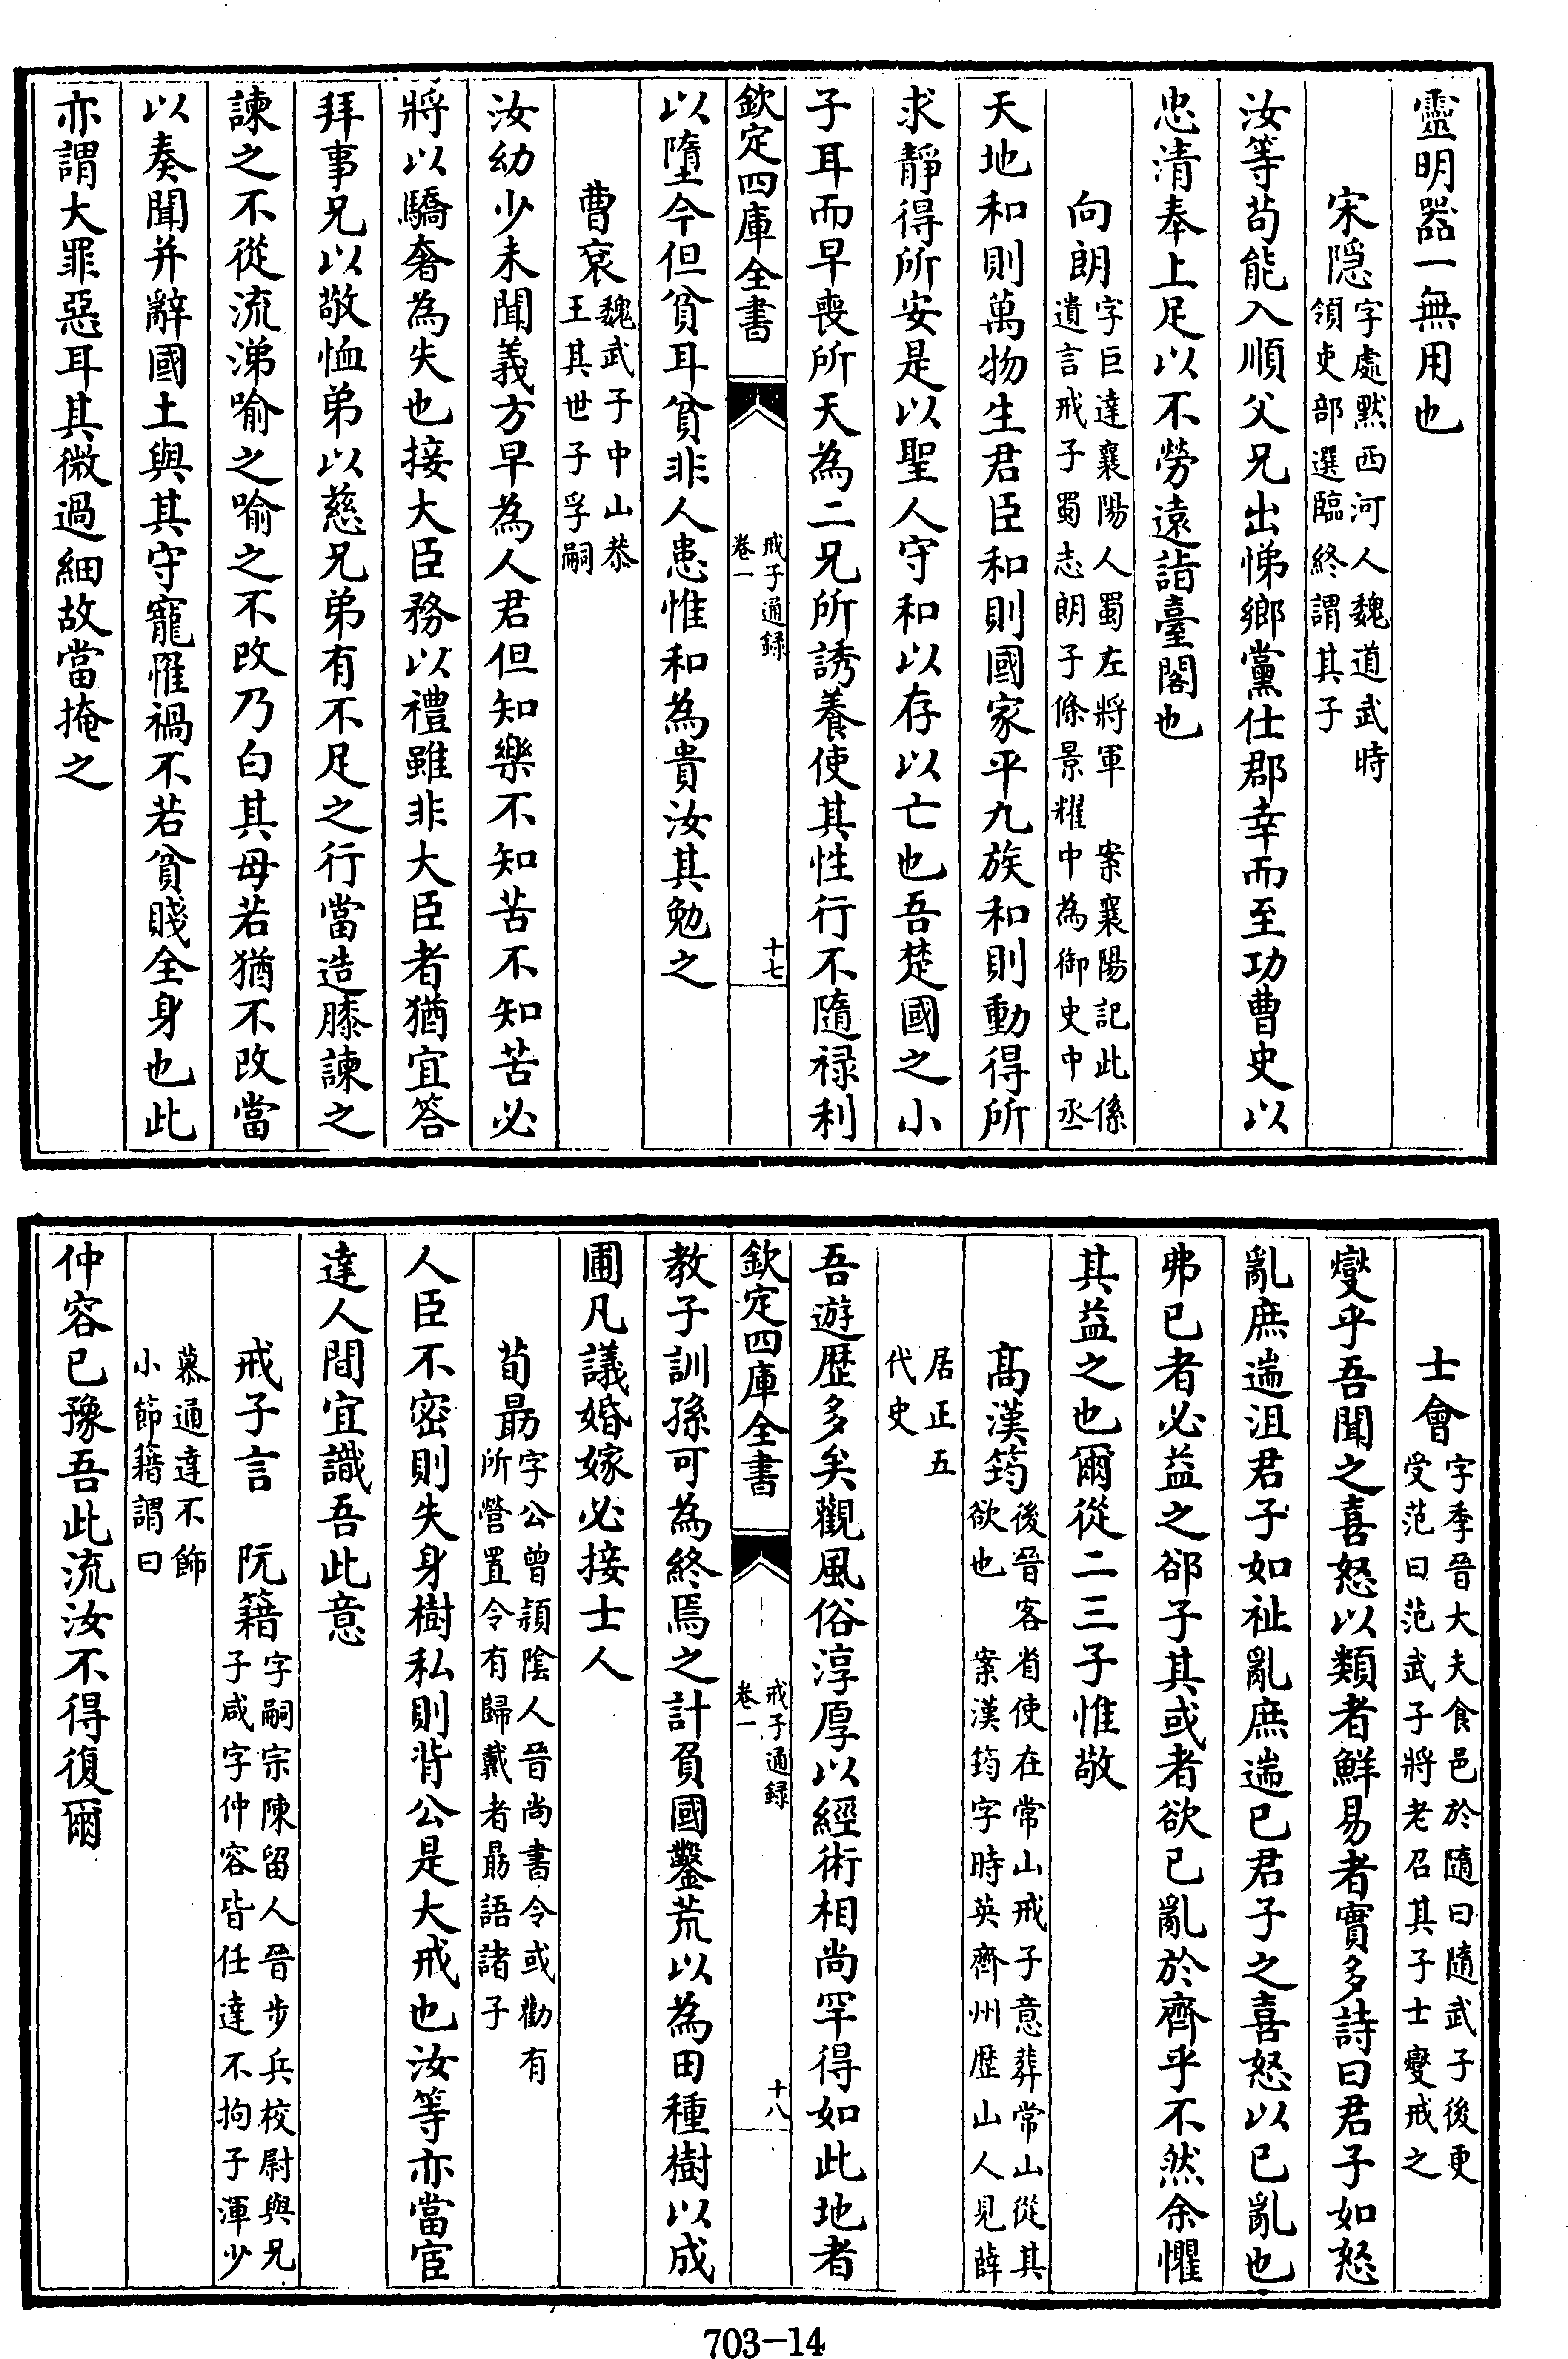 靈明器一無用也
宋隱字處黙西河人魏道武時領吏部選臨終謂其子
汝等苟能入順父兄出悌鄉黨仕郡幸而至功曹史以
忠清奉上足以不勞遠詣臺閣也
向朗字巨達襄陽人蜀左將軍遺言戒子蜀志朗子條景耀中為御史中丞 案襄陽記此係
天地和則萬物生君臣和則國家平九族和則動得所
求靜得所安是以聖人守和以存以亡也吾楚國之小
子耳而早喪所天為二兄所誘養使其性行不隨禄利
欽定四庫全書 戒子通録 卷一 十七
以墮今但貧耳貧非人患惟和為貴汝其勉之
曹衮魏武子中山恭王其世子孚嗣
汝幼少未聞義方早為人君但知樂不知苦不知苦必
將以驕奢為失也接大臣務以禮雖非大臣者猶宜答
拜事兄以敬恤弟以慈兄弟有不足之行當造膝諫之
諫之不從流涕喻之喻之不改乃白其母若猶不改當
以奏聞并辭國土與其守寵罹禍不若貧賤全身也此
亦謂大罪惡耳其微過細故當掩之
士會字季晉大夫食邑於隨曰隨武子後更受范曰范武子將老召其子士燮戒之
燮乎吾聞之喜怒以類者鮮易者實多詩曰君子如怒
亂庶遄沮君子如祉亂庶遄已君子之喜怒以已亂也
弗已者必益之郤子其或者欲已亂於齊乎不然余懼
其益之也爾從二三子惟敬
髙漢筠後晉客省使在常山戒子意葬常山從其欲也 案漢筠字時英齊州歴山人見薛
居正五代史
吾遊歴多矣觀風俗淳厚以經術相尚罕得如此地者
欽定四庫全書 戒子通録 卷一 十八
教子訓孫可為終焉之計負國鑿荒以為田種樹以成
圃凡議婚嫁必接士人
荀勗字公曾潁陰人晉尚書令或勸有所營置令有歸戴者勗語諸子
人臣不密則失身樹私則背公是大戒也汝等亦當宦
達人間宜識吾此意
戒子言 阮籍字嗣宗陳留人晉步兵校尉與兄子咸字仲容皆任達不拘子渾少
慕通達不飾小節籍謂曰
仲容已豫吾此流汝不得復爾
703-14